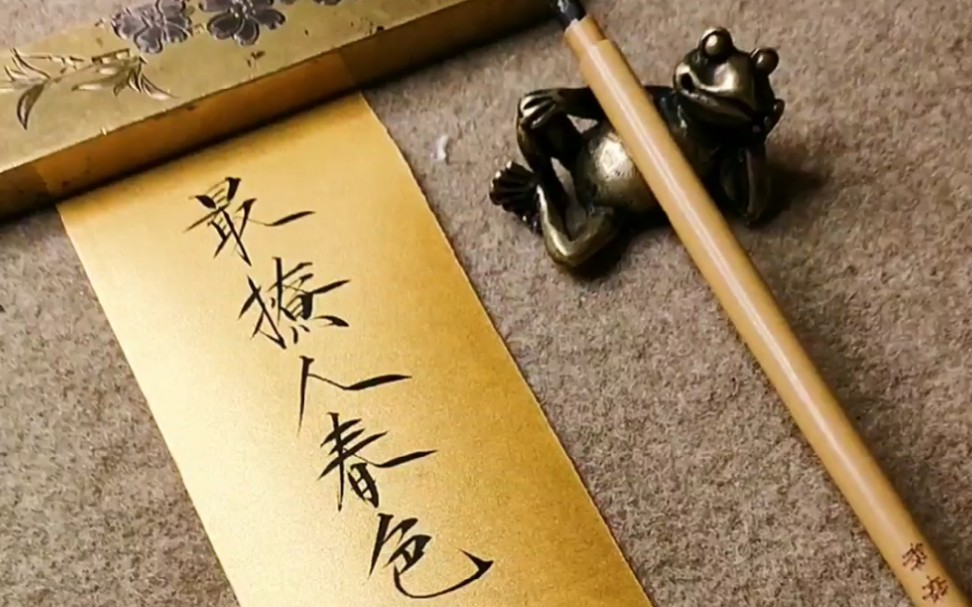 最撩人春色